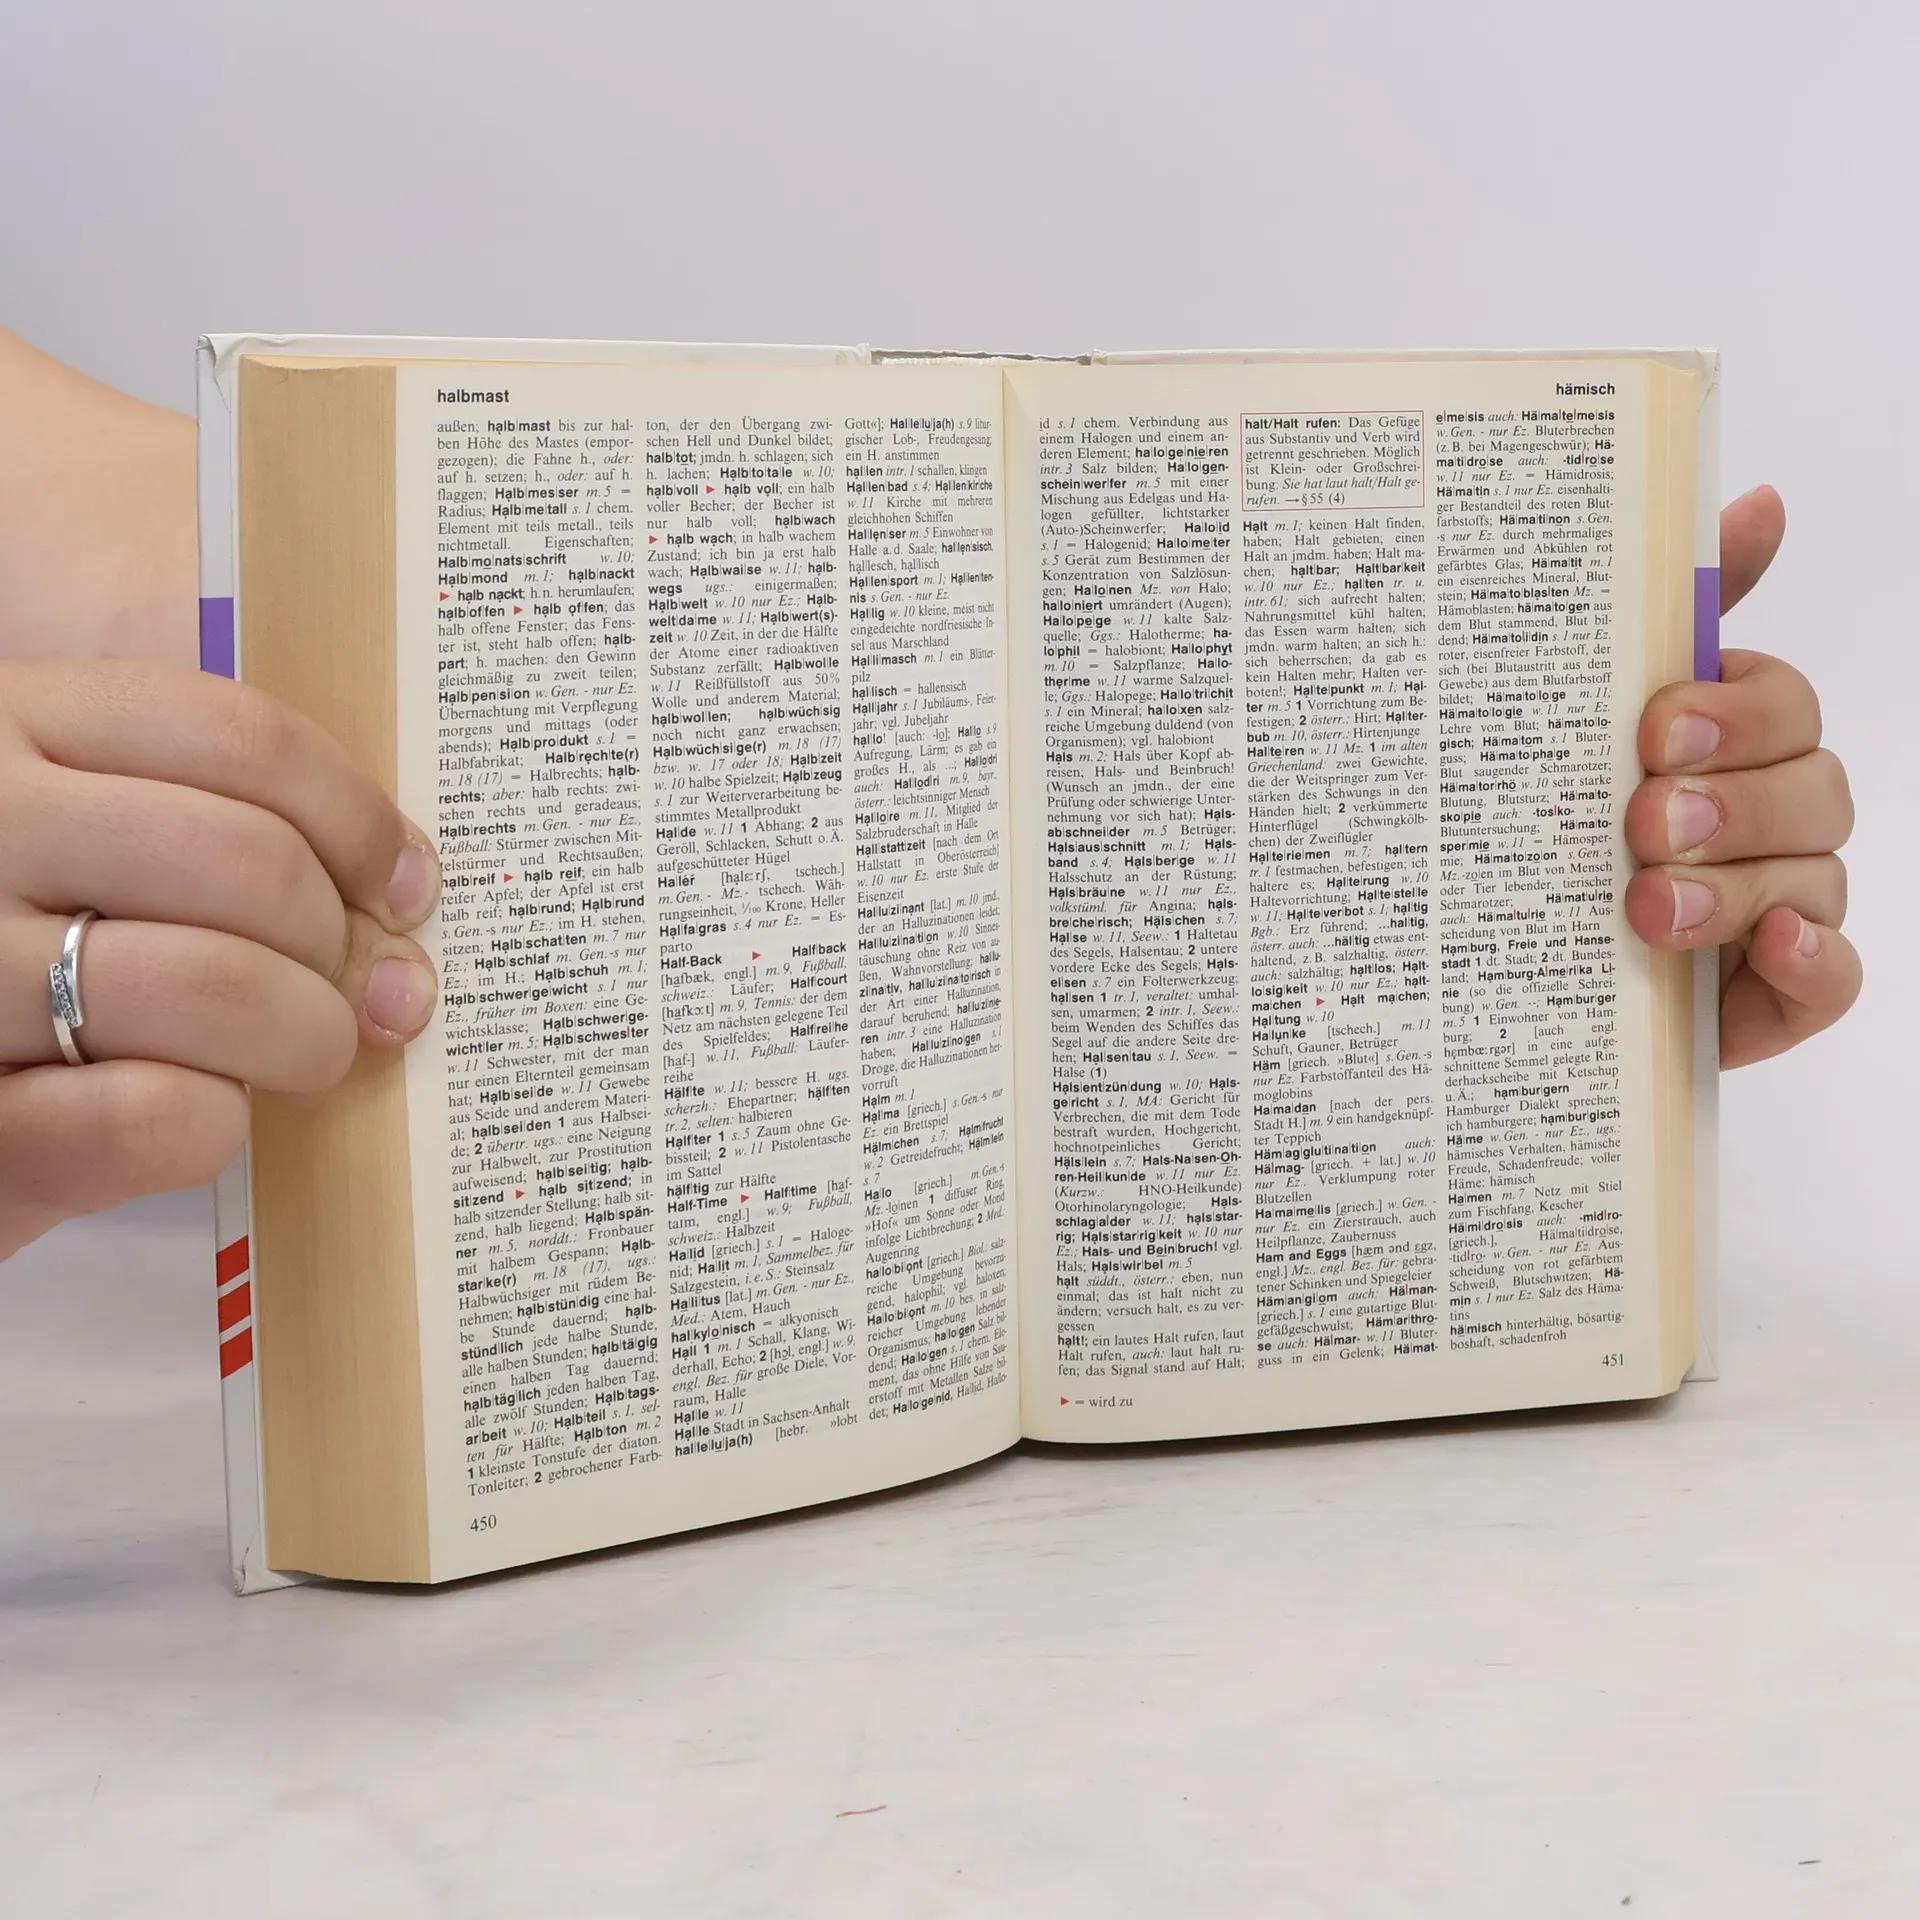 halbmast
außen; halbmast bis zur hal-
ben Höhe des Mastes (empor-
gezogen); die Fahne h., oder:
auf h. setzen; h., oder: auf h.
flaggen; Halbmesser m. 5 =
Radius; Halbmetall s. 1 chem.
Element mit teils metall., teils
nichtmetall. Eigenschaften;
Halbmonatsschrift w. 10;
Halbmond m. 1; halbnackt
▶ halb nackt; h. n. herumlaufen;
halboffen ▶ halb offen; das
halb offene Fenster; das Fens-
ter ist, steht halb offen; halb-
part; h. machen: den Gewinn
gleichmäßig zu zweit teilen;
Halbpension w. Gen. - nur Ez.
Übernachtung mit Verpflegung
morgens und mittags (oder
abends); Halbprodukt s. 1 =
Halbfabrikat; Halbrechte(r)
m. 18 (17) = Halbrechts; halb-
rechts; aber: halb rechts: zwi-
schen rechts und geradeaus;
Halbrechts m. Gen. - nur Ez.,
Fußball: Stürmer zwischen Mit-
telstürmer und Rechtsaußen;
halbreif ▶ halb reif; ein halb
reifer Apfel; der Apfel ist erst
halb reif; halbrund; Halbrund
s. Gen. -s nur Ez.; im H. stehen,
sitzen; Halbschatten m. 7 nur
Ez.; Halbschlaf m. Gen. -s nur
Ez.; im H.; Halbschuh m. 1;
Halbschwergewicht s. 1 nur
Ez., früher im Boxen: eine Ge-
wichtsklasse; Halbschwerge-
wichtler m. 5; Halbschwester
w. 11 Schwester, mit der man
nur einen Elternteil gemeinsam
hat; Halbseide w. 11 Gewebe
aus Seide und anderem Materi-
al; halbseiden 1 aus Halbsei-
de; 2 übertr. ugs.: eine Neigung
zur Halbwelt, zur Prostitution
aufweisend; halbseitig; halb-
sitzend ▶ halb sitzend; in
halb sitzender Stellung; halb sit-
zend, halb liegend; Halbspän-
ner m. 5, norddt.: Fronbauer
mit halbem Gespann; Halb-
starke(r) m. 18 (17), ugs.:
Halbwüchsiger mit rüdem Be-
nehmen; halbstündig eine hal-
be Stunde dauernd; halb-
stündlich jede halbe Stunde,
alle halben Stunden; halbtägig
einen halben Tag dauernd;
halbtäglich jeden halben Tag,
alle zwölf Stunden; Halbtags-
arbeit w. 10; Halbteil s. 1, sel-
ten für Hälfte; Halbton m. 2
1 kleinste Tonstufe der diaton.
Tonleiter; 2 gebrochener Farb-
ton, der den Übergang zwi-
schen Hell und Dunkel bildet;
halbtot; jmdn. h. schlagen; sich
h. lachen; Halbtotale w. 10;
halbvoll ▶ halb voll; ein halb
voller Becher; der Becher ist
nur halb voll; halbwach
▶ halb wach; in halb wachem
Zustand; ich bin ja erst halb
wach; Halbwaise w. 11; halb-
wegs ugs.: einigermaßen;
Halbwelt w. 10 nur Ez.; Halb-
weltdame w. 11; Halbwert(s)-
zeit w. 10 Zeit, in der die Hälfte
der Atome einer radioaktiven
Substanz zerfällt; Halbwolle
w. 11 Reißfüllstoff aus 50%
Wolle und anderem Material;
halbwollen; halbwüchsig
noch nicht ganz erwachsen;
Halbwüchsige(r) m. 18 (17)
bzw. w. 17 oder 18; Halbzeit
w. 10 halbe Spielzeit; Halbzeug
s. 1 zur Weiterverarbeitung be-
stimmtes Metallprodukt
Halde w. 11 1 Abhang; 2 aus
Geröll, Schlacken, Schutt o. Ä.
aufgeschütteter Hügel
Haléř [halɛrʃ, tschech.]
m. Gen. - Mz. - tschech. Wäh-
rungseinheit, 1/100 Krone, Heller
Halfagras s. 4 nur Ez. = Es-
parto
Half-Back ▶ Halfback
[hafbæk, engl.] m. 9, Fußball,
schweiz.: Läufer; Halfcourt
[hafkɔːt] m. 9, Tennis: der dem
Netz am nächsten gelegene Teil
des Spielfeldes; Halfreihe
[haf-] w. 11, Fußball: Läufer-
reihe
Hälfte w. 11; bessere H. ugs.
scherzh.: Ehepartner; hälften
tr. 2, selten: halbieren
Halfter 1 s. 5 Zaum ohne Ge-
bissteil; 2 w. 11 Pistolentasche
im Sattel
hälftig zur Hälfte
Half-Time ▶ Halftime [haf-
taim, engl.] w. 9; Fußball,
schweiz.: Halbzeit
Halid [griech.] s. 1 = Haloge-
nid; Halit m. 1, Sammelbez. für
Salzgestein, i. e. S.: Steinsalz
Halitus [lat.] m. Gen. - nur Ez.,
Med.: Atem, Hauch
halkyonisch = alkyonisch
Hall 1 m. 1 Schall, Klang, Wi-
derhall, Echo; 2 [hɔl, engl.] w. 9,
engl. Bez. für große Diele, Vor-
raum, Halle
Halle w. 11
Halle Stadt in Sachsen-Anhalt
halleluja(h) [hebr. »lobt
Gott«]; Halleluja(h) s. 9 litur-
gischer Lob-, Freudengesang;
ein H. anstimmen
hallen intr. 1 schallen, klingen
Hallenbad s. 4; Hallenkirche
w. 11 Kirche mit mehreren
gleichhohen Schiffen
Hallenser m. 5 Einwohner von
Halle a. d. Saale; hallensisch,
hallesch, hallisch
Hallensport m. 1; Hallenten-
nis s. Gen. - nur Ez.
Hallig w. 10 kleine, meist nicht
eingedeichte nordfriesische In-
sel aus Marschland
Hallimasch m. 1 ein Blätter-
pilz
hallisch = hallensisch
Halljahr s. 1 Jubiläums-, Feier-
jahr; vgl. Jubeljahr
hallo! [auch: -lo]; Hallo s. 9
Aufregung, Lärm; es gab ein
großes H., als ...; Hallodri
auch: Hallodri m. 9, bayr.
österr.: leichtsinniger Mensch
Hallore m. 11, Mitglied der
Salzbruderschaft in Halle
Hallstattzeit [nach dem Ort
Hallstatt in Oberösterreich]
w. 10 nur Ez. erste Stufe der
Eisenzeit
Halluzinant [lat.] m. 10 jmd.,
der an Halluzinationen leidet;
Halluzination w. 10 Sinnes-
täuschung ohne Reiz von au-
ßen, Wahnvorstellung; hallu-
zinativ, halluzinatorisch in
der Art einer Halluzination,
darauf beruhend; halluzinie-
ren intr. 3 eine Halluzination
haben; Halluzinogen s. 1
Droge, die Halluzinationen her-
vorruft
Halm m. 1
Halma [griech.] s. Gen. -s nur
Ez. ein Brettspiel
Hälmchen s. 7; Halmfrucht
w. 2 Getreidefrucht; Hälmlein
s. 7
Halo [griech.] m. Gen. -s
Mz. -lonen 1 diffuser Ring,
»Hof« um Sonne oder Mond
infolge Lichtbrechung; 2 Med.:
Augenring
halobiont [griech.] Biol.: salz-
reiche Umgebung bevorzu-
gend, halophil; vgl. haloxen;
Halobiont m. 10 bes. in salz-
reicher Umgebung lebender
Organismus; halogen Salz bil-
dend; Halogen s. 1 chem. Ele-
ment, das ohne Hilfe von Sau-
erstoff mit Metallen Salze bil-
det; Halogenid, Halid, Halo-
450
hämisch
id s. 1 chem. Verbindung aus
einem Halogen und einem an-
deren Element; halogenieren
intr. 3 Salz bilden; Halogen-
scheinwerfer m. 5 mit einer
Mischung aus Edelgas und Ha-
logen gefüllter, lichtstarker
(Auto-)Scheinwerfer; Haloid
s. 1 = Halogenid; Halometer
s. 5 Gerät zum Bestimmen der
Konzentration von Salzlösun-
gen; Halonen Mz. von Halo;
haloniert umrändert (Augen);
Halopege w. 11 kalte Salz-
quelle; Ggs.: Halotherme; ha-
lophil = halobiont; Halophyt
m. 10 = Salzpflanze; Halo-
therme w. 11 warme Salzquel-
le; Ggs.: Halopege; Halotrichit
s. 1 ein Mineral; haloxen salz-
reiche Umgebung duldend (von
Organismen); vgl. halobiont
Hals m. 2; Hals über Kopf ab-
reisen; Hals- und Beinbruch!
(Wunsch an jmdn., der eine
Prüfung oder schwierige Unter-
nehmung vor sich hat); Hals-
abschneider m. 5 Betrüger;
Halsausschnitt m. 1; Hals-
band s. 4; Halsberge w. 11
Halsschutz an der Rüstung;
Halsbräune w. 11 nur Ez.,
volkstüml. für Angina; hals-
brecherisch; Hälschen s. 7;
Halse w. 11, Seew.: 1 Haltetau
des Segels, Halsentau; 2 untere
vordere Ecke des Segels; Hals-
eisen s. 7 ein Folterwerkzeug;
halsen 1 tr. 1, veraltet: umhal-
sen, umarmen; 2 intr. 1, Seew.:
beim Wenden des Schiffes das
Segel auf die andere Seite dre-
hen; Halsentau s. 1, Seew. =
Halse (1)
Halsentzündung w. 10; Hals-
gericht s. 1, MA: Gericht für
Verbrechen, die mit dem Tode
bestraft wurden, Hochgericht,
hochnotpeinliches Gericht;
Hälslein s. 7; Hals-Nasen-Oh-
ren-Heilkunde w. 11 nur Ez.
(Kurzw.: HNO-Heilkunde)
Otorhinolaryngologie; Hals-
schlagader w. 11; halsstar-
rig; Halsstarrigkeit w. 10 nur
Ez.; Hals- und Beinbruch! vgl.
Hals; Halswirbel m. 5
halt süddt., österr.: eben, nun
einmal; das ist halt nicht zu
ändern; versuch halt, es zu ver-
gessen
halt!; ein lautes Halt rufen, laut
Halt rufen, auch: laut halt ru-
fen; das Signal stand auf Halt;
▶ = wird zu
halt/Halt rufen: Das Gefüge
aus Substantiv und Verb wird
getrennt geschrieben. Möglich
ist Klein- oder Großschrei-
bung: Sie hat laut halt/Halt ge-
rufen. →§ 55 (4)
Halt m. 1; keinen Halt finden,
haben; Halt gebieten; einen
Halt an jmdm. haben; Halt ma-
chen; haltbar; Haltbarkeit
w. 10 nur Ez.; halten tr. u.
intr. 61; sich aufrecht halten;
Nahrungsmittel kühl halten;
das Essen warm halten; sich
jmdn. warm halten; an sich h.:
sich beherrschen; da gab es
kein Halten mehr; Halten ver-
boten!; Haltepunkt m. 1; Hal-
ter m. 5 1 Vorrichtung zum Be-
festigen; 2 österr.: Hirt; Halter-
bub m. 10, österr.: Hirtenjunge
Halteren w. 11 Mz. 1 im alten
Griechenland: zwei Gewichte,
die der Weitspringer zum Ver-
stärken des Schwungs in den
Händen hielt; 2 verkümmerte
Hinterflügel (Schwingkölb-
chen) der Zweiflügler
Halteriemen m. 7; haltern
tr. 1 festmachen, befestigen; ich
haltere es; Halterung w. 10
Haltevorrichtung; Haltestelle
w. 11; Halteverbot s. 1; haltig
Bgb.: Erz führend; ...haltig,
österr. auch: ...hältig etwas ent-
haltend, z. B. salzhaltig, österr.
auch: salzhältig; haltlos; Halt-
losigkeit w. 10 nur Ez.; halt-
machen ▶ Halt machen;
Haltung w. 10
Halunke [tschech.] m. 11
Schuft, Gauner, Betrüger
Häm [griech. »Blut«] s. Gen. -s
nur Ez. Farbstoffanteil des Hä-
moglobins
Hamadan [nach der pers.
Stadt H.] m. 9 ein handgeknüpf-
ter Teppich
Hämagglutination auch:
Hälmag- [griech. + lat.] w. 10
nur Ez., Verklumpung roter
Blutzellen
Hamamelis [griech.] w. Gen. -
nur Ez. ein Zierstrauch, auch
Heilpflanze, Zaubernuss
Ham and Eggs [hæm ənd ɛgz,
engl.] Mz., engl. Bez. für: gebra-
tener Schinken und Spiegeleier
Hämangiom auch: Hälman-
[griech.] s. 1 eine gutartige Blut-
gefäßgeschwulst; Hämarthro-
se auch: Hälmar- w. 11 Bluter-
guss in ein Gelenk; Hämat-
emesis auch: Hämatemesis
w. Gen. - nur Ez. Bluterbrechen
(z. B. bei Magengeschwür); Hä-
matidrose auch: -tidrose
w. 11 nur Ez. = Hämidrosis;
Hämatin s. 1 nur Ez. eisenhalti-
ger Bestandteil des roten Blut-
farbstoffs; Hämatinon s. Gen.
-s nur Ez. durch mehrmaliges
Erwärmen und Abkühlen rot
gefärbtes Glas; Hämatit m. 1
ein eisenreiches Mineral, Blut-
stein; Hämatoblasten Mz. =
Hämoblasten; hämatogen aus
dem Blut stammend, Blut bil-
dend; Hämatoidin s. 1 nur Ez.
roter, eisenfreier Farbstoff, der
sich (bei Blutaustritt aus dem
Gewebe) aus dem Blutfarbstoff
bildet; Hämatologe m. 11;
Hämatologie w. 11 nur Ez.
Lehre vom Blut; hämatolo-
gisch; Hämatom s. 1 Bluter-
guss; Hämatophage m. 11
Blut saugender Schmarotzer;
Hämatorrhö w. 10 sehr starke
Blutung, Blutsturz; Hämato-
skopie auch: -tosko- w. 11
Blutuntersuchung; Hämato-
spermie w. 11 = Hämosper-
mie; Hämatozoon s. Gen. -s
Mz. -zoen im Blut von Mensch
oder Tier lebender, tierischer
Schmarotzer; Hämaturie
auch: Hämaturie w. 11 Aus-
scheidung von Blut im Harn
Hamburg, Freie und Hanse-
stadt 1 dt. Stadt; 2 dt. Bundes-
land; Hamburg-Amerika Li-
nie (so die offizielle Schrei-
bung) w. Gen. --; Hamburger
m. 5 1 Einwohner von Ham-
burg; 2 [auch engl.
hɛmbœːrgər] in eine aufge-
schnittene Semmel gelegte Rin-
derhackscheibe mit Ketschup
u. Ä.; hamburgern intr. 1
Hamburger Dialekt sprechen;
ich hamburgere; hamburgisch
Häme w. Gen. - nur Ez., ugs.:
hämisches Verhalten, hämische
Freude, Schadenfreude; voller
Häme: hämisch
Hamen m. 7 Netz mit Stiel
zum Fischfang, Kescher
Hämidrosis auch: -midro-
[griech.], Hämatidrose,
-tidro- w. Gen. - nur Ez. Aus-
scheidung von rot gefärbtem
Schweiß, Blutschwitzen; Hä-
min s. 1 nur Ez. Salz des Häma-
tins
hämisch hinterhältig, bösartig-
boshaft, schadenfroh
451